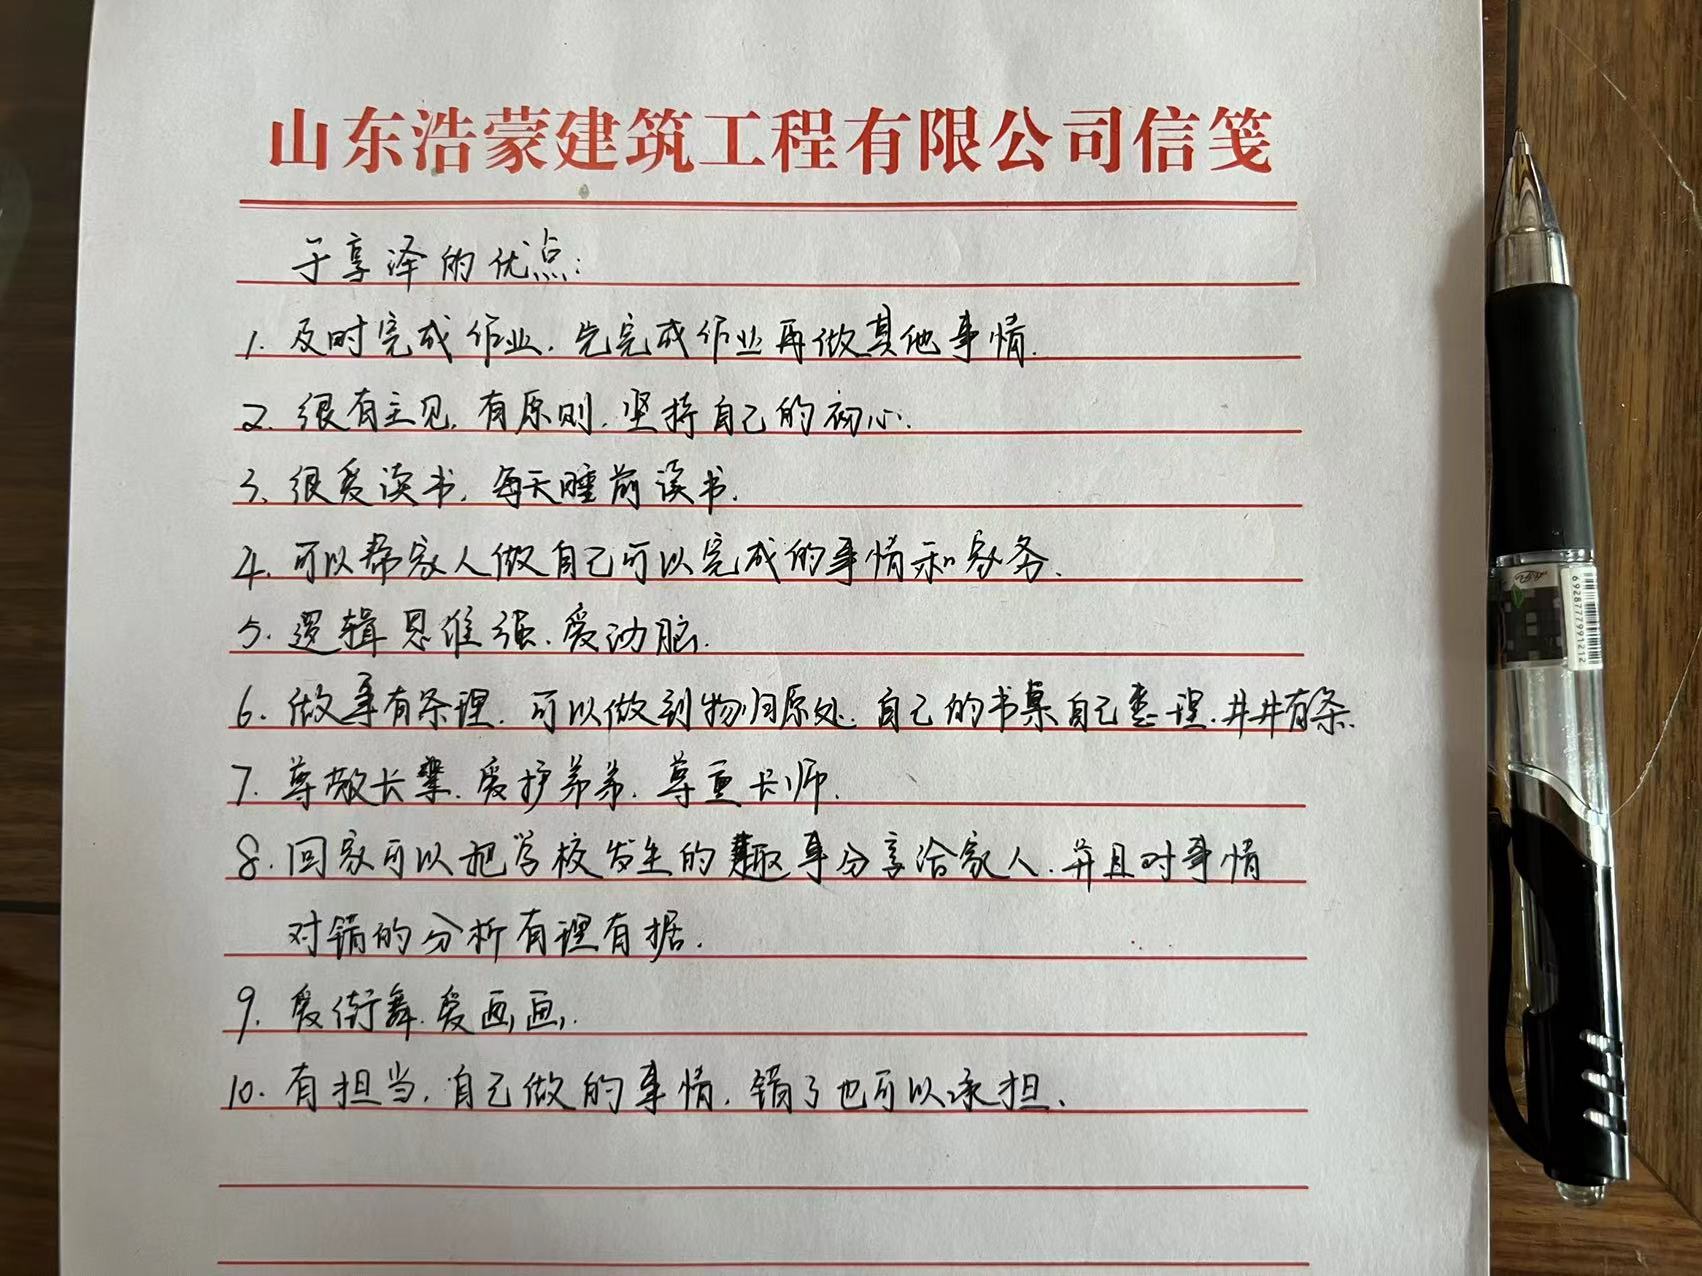 山东浩蒙建筑工程有限公司信笺
于享泽的优点:
1. 及时完成作业.先完成作业再做其他事情.
2. 很有主见.有原则.坚持自己的初心.
3. 很爱读书.每天睡前读书.
4. 可以帮家人做自己可以完成的事情和家务.
5. 逻辑思维强.爱动脑.
6. 做事有条理.可以做到物归原处.自己的书桌自己整理.井井有条.
7. 尊敬长辈.爱护弟弟.尊重长师.
8. 回家可以把学校发生的趣事分享给家人.并且对事情
对错的分析有理有据.
9. 爱街舞.爱画画.
10. 有担当.自己做的事情.错了也可以承担.
6928777991212